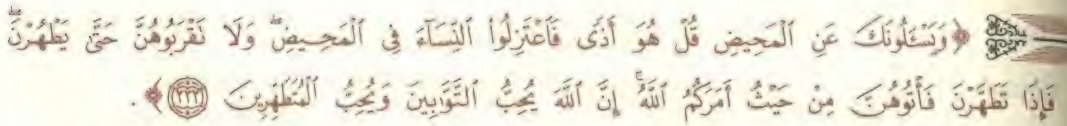 ﴿وَيَسْـَٔلُونَكَ عَنِ ٱلْمَحِيضِ قُلْ هُوَ أَذًى فَٱعْتَزِلُوا۟ ٱلنِّسَآءَ فِى ٱلْمَحِيضِ ۖ وَلَا نَقْرَبُوهُنَّ حَتَّىٰ يَطْهُرْنَ ۖ
فَإِذَا تَطَهَّرْنَ فَأْتُوهُنَّ مِنْ حَيْثُ أَمَرَكُمُ ٱللَّهُ ۚ إِنَّ ٱللَّهَ يُحِبُّ ٱلتَّوَّٰبِينَ وَيُحِبُّ ٱلْمُتَطَهِّرِينَ ٢٢٢﴾.